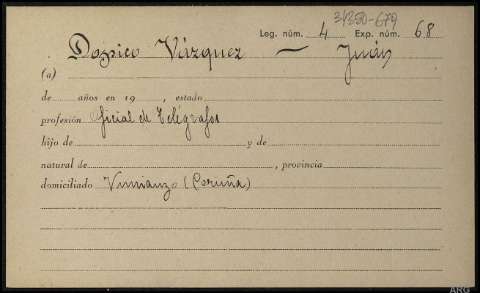 31350-679
Leg. núm. 4 Exp. núm. 68
Dopico Vázquez — Juán
(a)
de años en 19 , estado
profesión Oficial de Telégrafos
hijo de y de
natural de , provincia
domiciliado Vimianzo (Coruña)
ARG